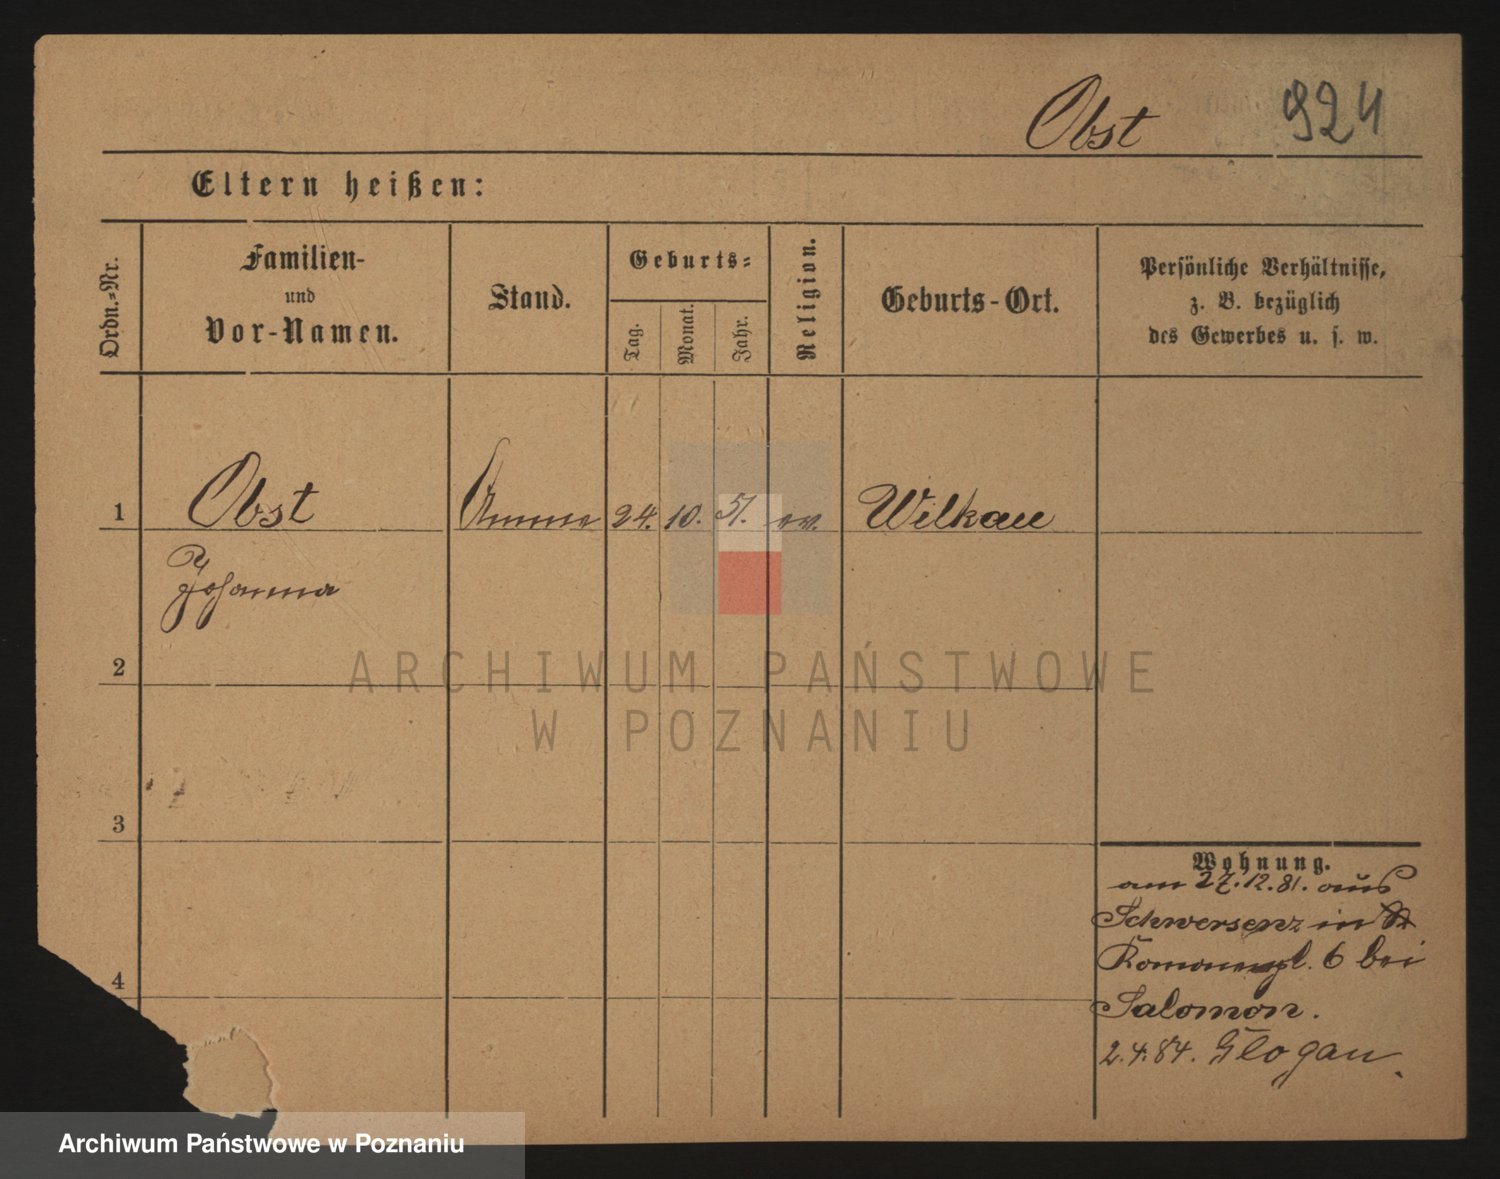 Obst 924
Eltern heißen:
Ordn.=Nr.
Familien-
und
Vor-Namen.
Stand.
Geburts=
Tag.
Monat.
Jahr.
Religion.
Geburts-Ort.
Persönliche Verhältnisse,
z. B. bezüglich
des Gewerbes u. s. w.
1 Obst Amme 24. 10. 51. ev. Wilkau
Johanna
2
3
4
Wohnung.
am 27.12.81. aus
Schwersenz in
l. 6 bei
Salomon.
2.4.84. Glogau.
ARCHIWUM PAŃSTWOWE
W POZNANIU
Archiwum Państwowe w Poznaniu